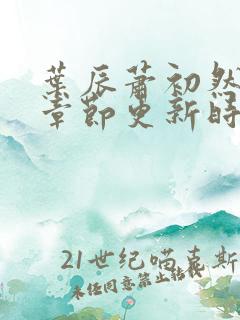 葉辰蕭初然
章節更新時
21世纪喵喜斯
未经同意禁止转载